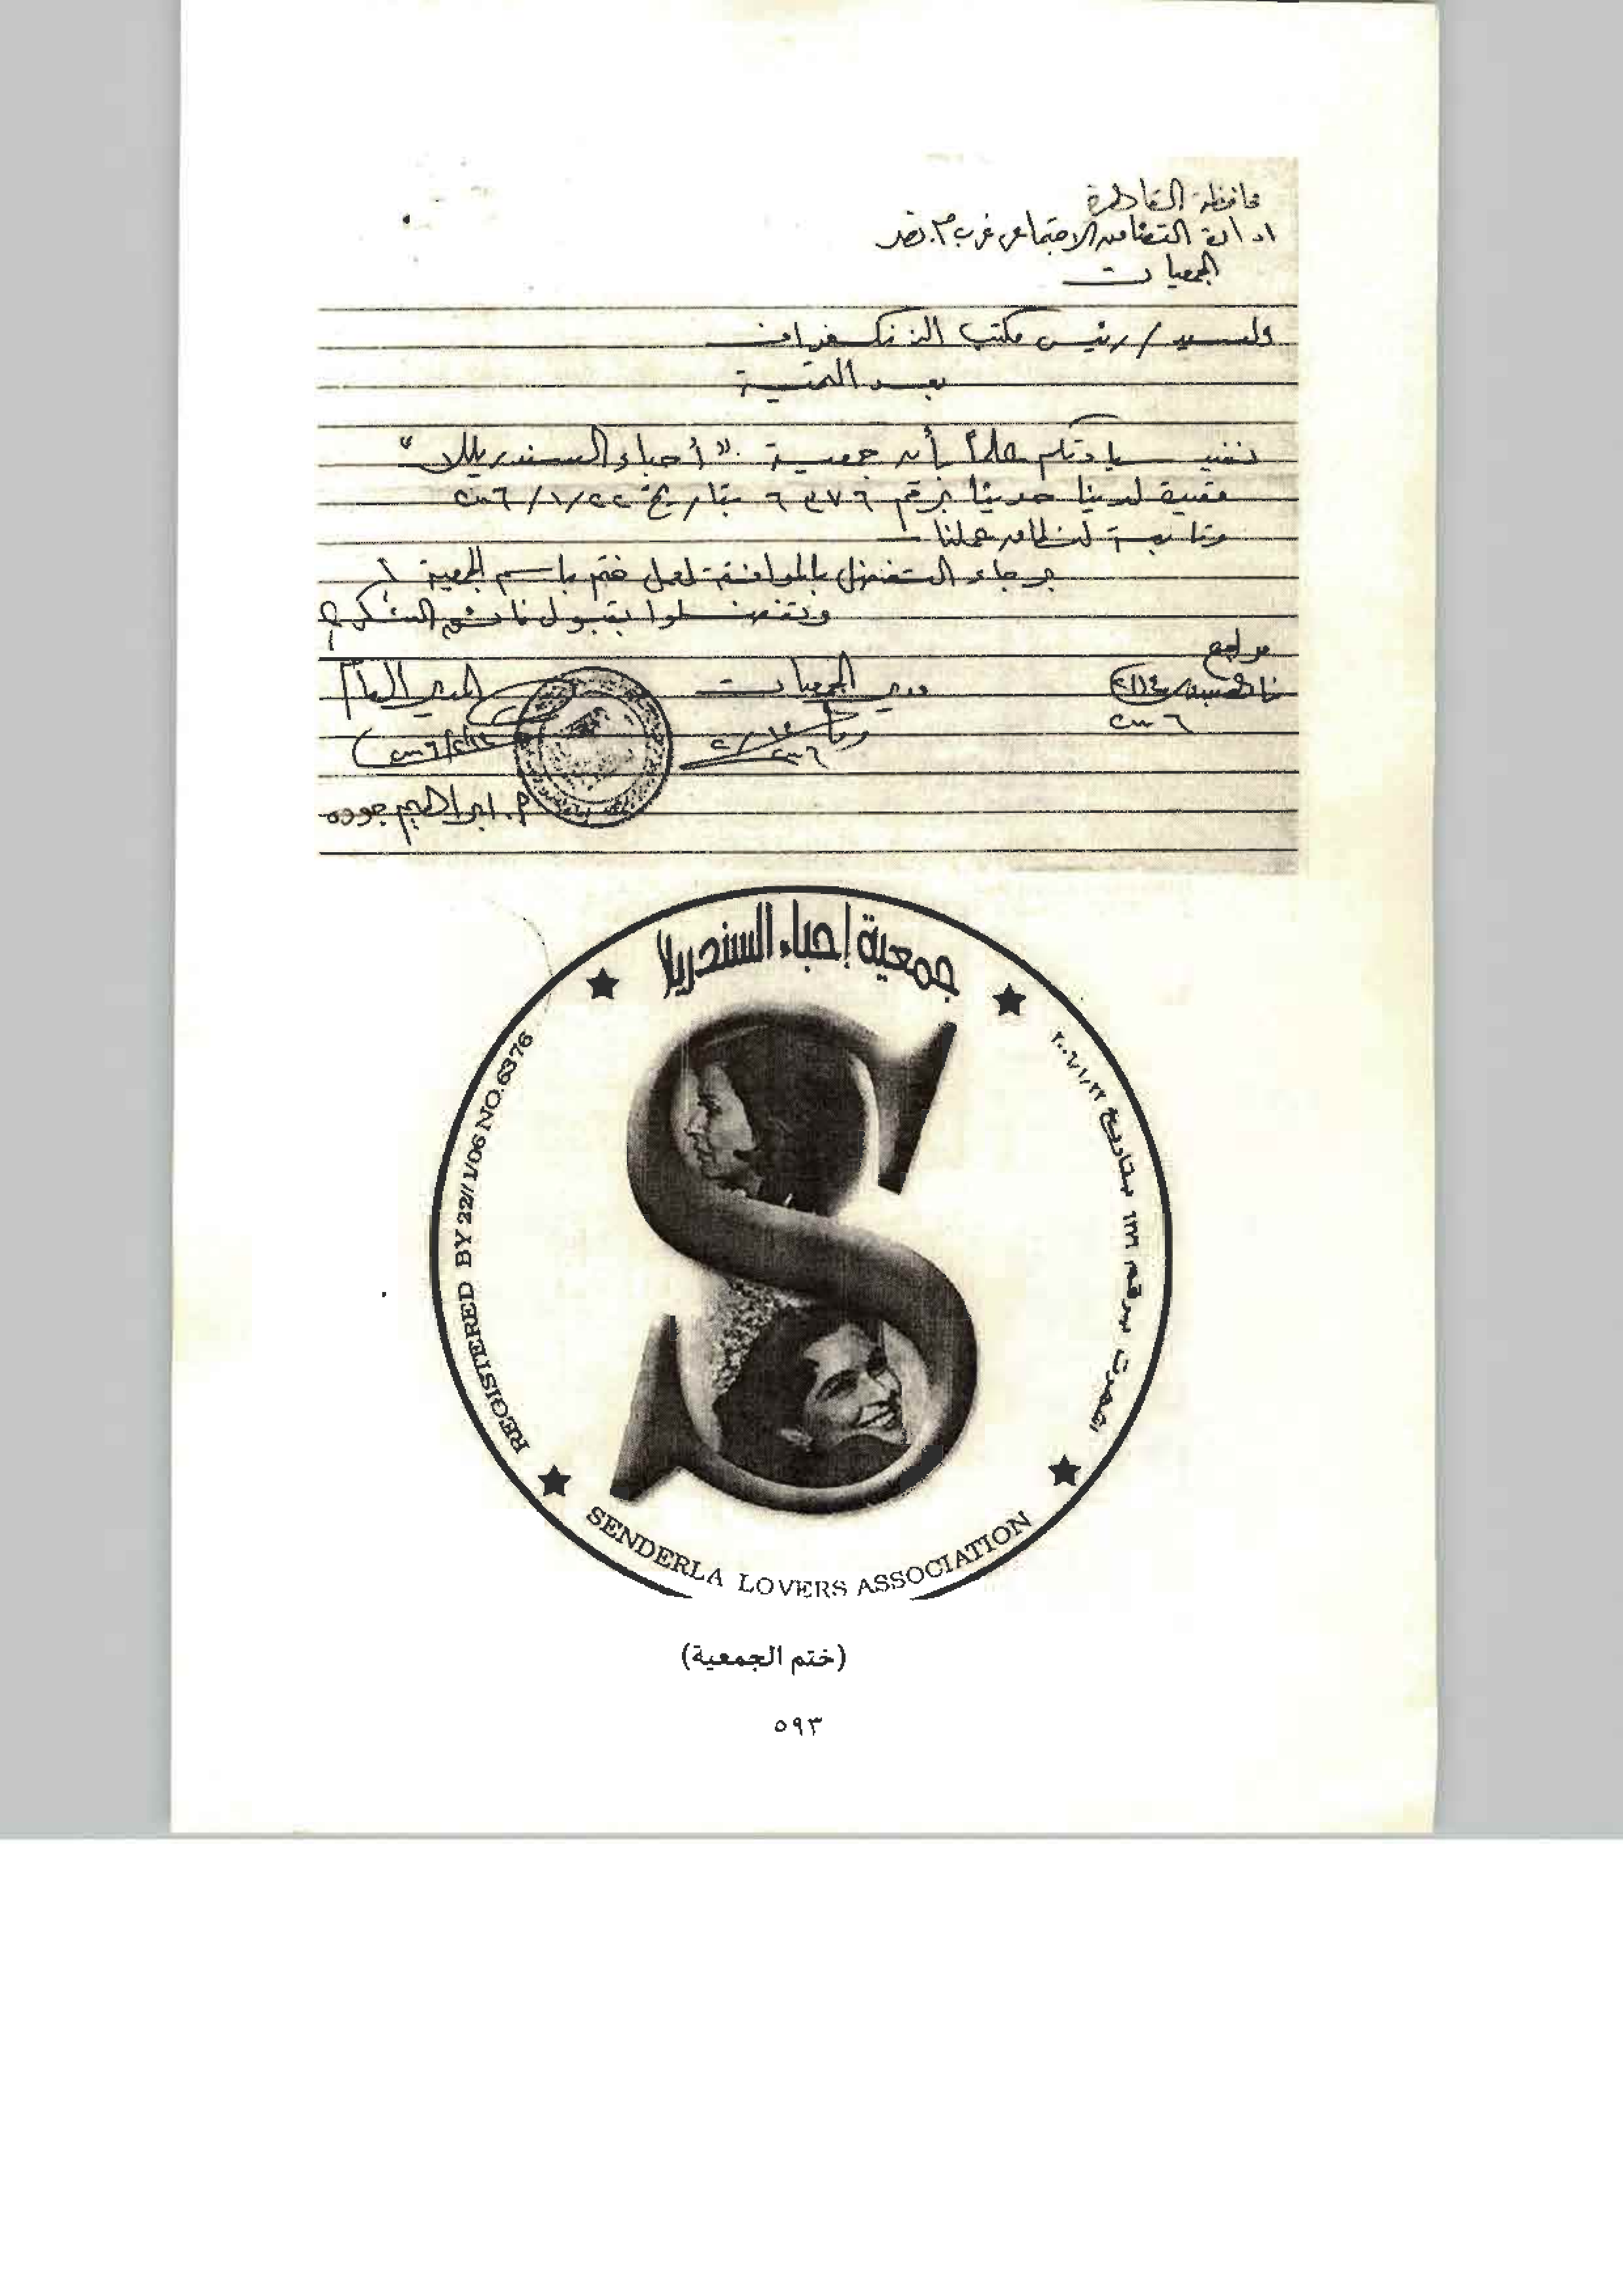 محافظة القاهرة
ادارة التضامن الاجتماعى غرب م. نصر
الجمعيات
السيد / رئيس مكتب الزنكغراف
بعد التحية
نفيد سيادتكم علماً بأن جمعية "أحباء السندريللا"
مقيدة لدينا حديثا برقم ٦٣٧٦ بتاريخ ٢٢/١/٢٠٠٦
وتابعة لنطاق عملنا
برجاء التفضل بالموافقة لعمل ختم باسم الجمعية
وتفضلوا بقبول فائق الشكر
مراجع
مدير الجمعيات
المدير العام
٢٠٠٦
م. ابراهيم جوده
جمعية إحباء السندريلا
REGISTERED BY 22//1/06 NO.6376
اشهرت برقم ٦٣٧٦ بتاريخ ٢٠٠٦/١/٢٢
SENDERLA LOVERS ASSOCIATION
(ختم الجمعية)
٥٩٣